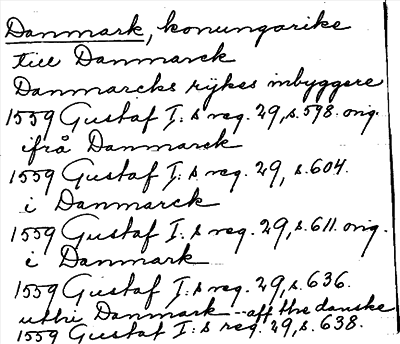 Danmark, konungarike
till Danmarck
Danmarcks rijkes inbyggere
1559 Gustaf I:s reg. 29, s. 598. orig.
ifrå Danmarck
1559 Gustaf I:s reg. 29, s. 604.
i Danmarck
1559 Gustaf I:s reg. 29, s. 611. orig.
i Danmark
1559 Gustaf I:s reg. 29, s. 636.
uthi Danmark -- aff the danske
1559 Gustaf I:s reg. 29, s. 638.